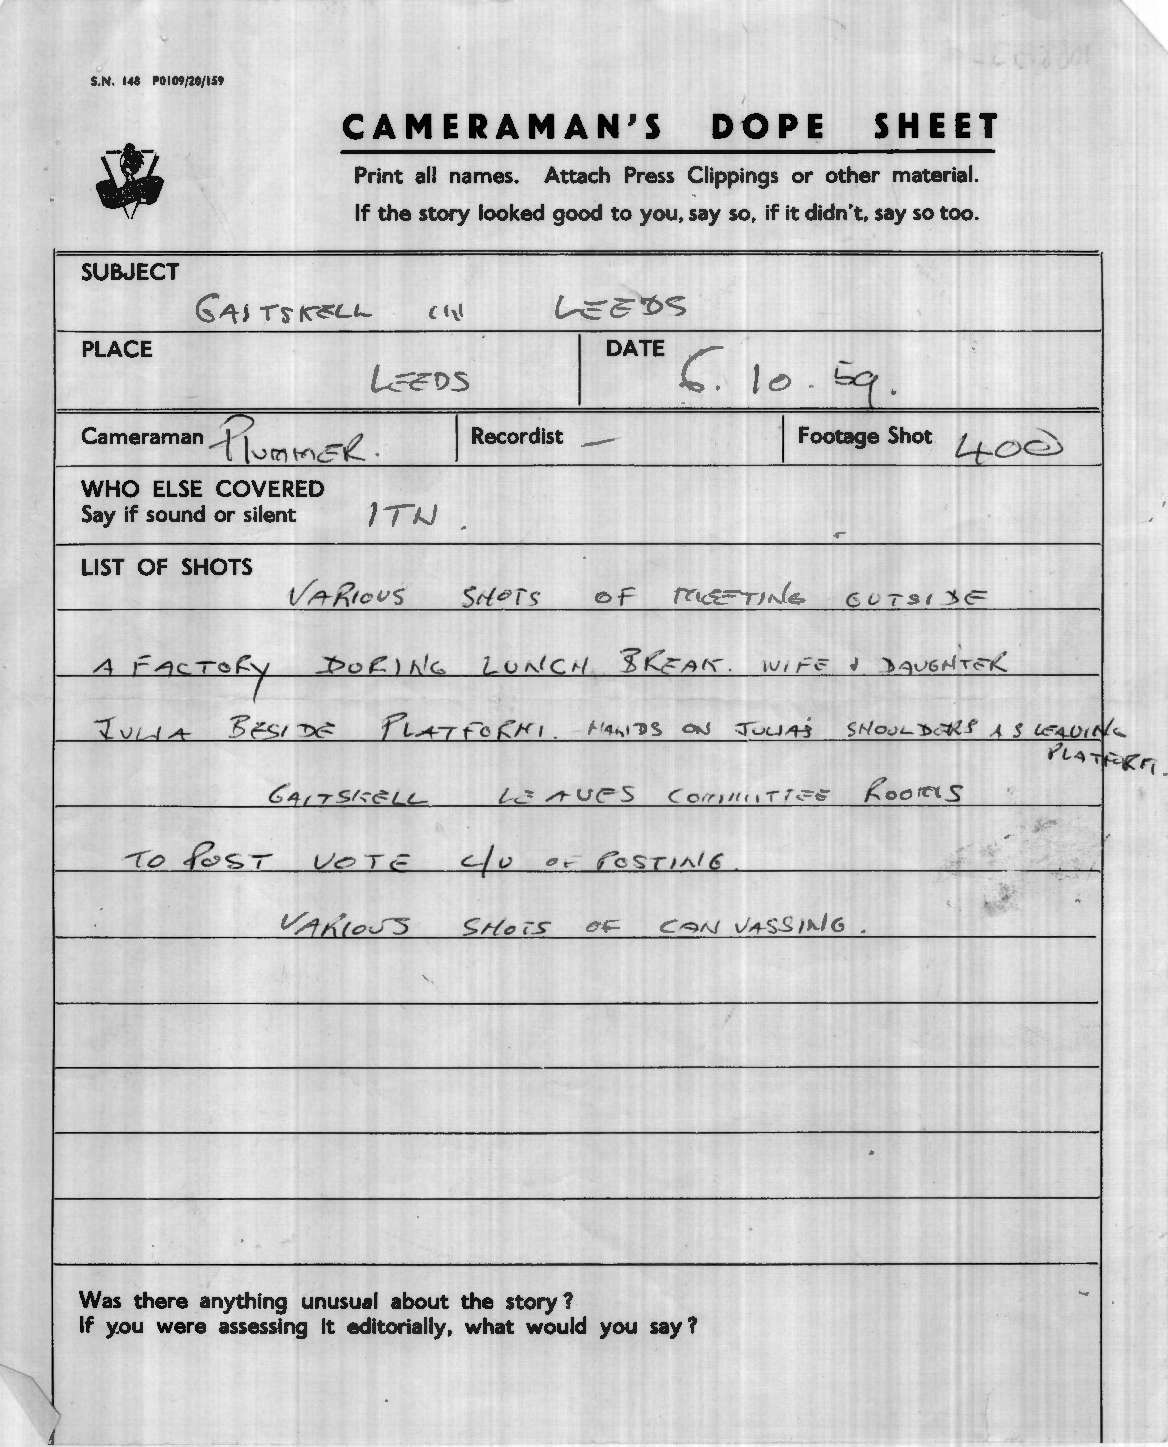 S.N. 148 P0109/20/159
CAMERAMAN'S DOPE SHEET
Print all names. Attach Press Clippings or other material.
If the story looked good to you, say so, if it didn't, say so too.
SUBJECT
GAITSKELL IN LEEDS
PLACE
LEEDS
DATE
6. 10. 59.
Cameraman PLUMMER.
Recordist –
Footage Shot 400
WHO ELSE COVERED
Say if sound or silent ITN.
LIST OF SHOTS
VARIOUS SHOTS OF MEETING OUTSIDE
A FACTORY DURING LUNCH BREAK. WIFE & DAUGHTER
JULIA BESIDE PLATFORM. HANDS ON JULIA'S SHOULDERS AS LEAVING
PLATFORM.
GAITSKELL LEAVES COMMITTEE ROOMS
TO POST VOTE C/U OF POSTING.
VARIOUS SHOTS OF CANVASSING.
Was there anything unusual about the story?
If you were assessing it editorially, what would you say?